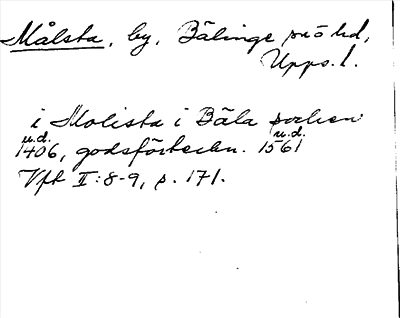 Målsta, by, Bälinge sn o hd,
Upps. l.
i Molista i Bäla socken
u.d. u.d.
1406, godsförteckn. 1561
Vft II:8-9, p. 171.